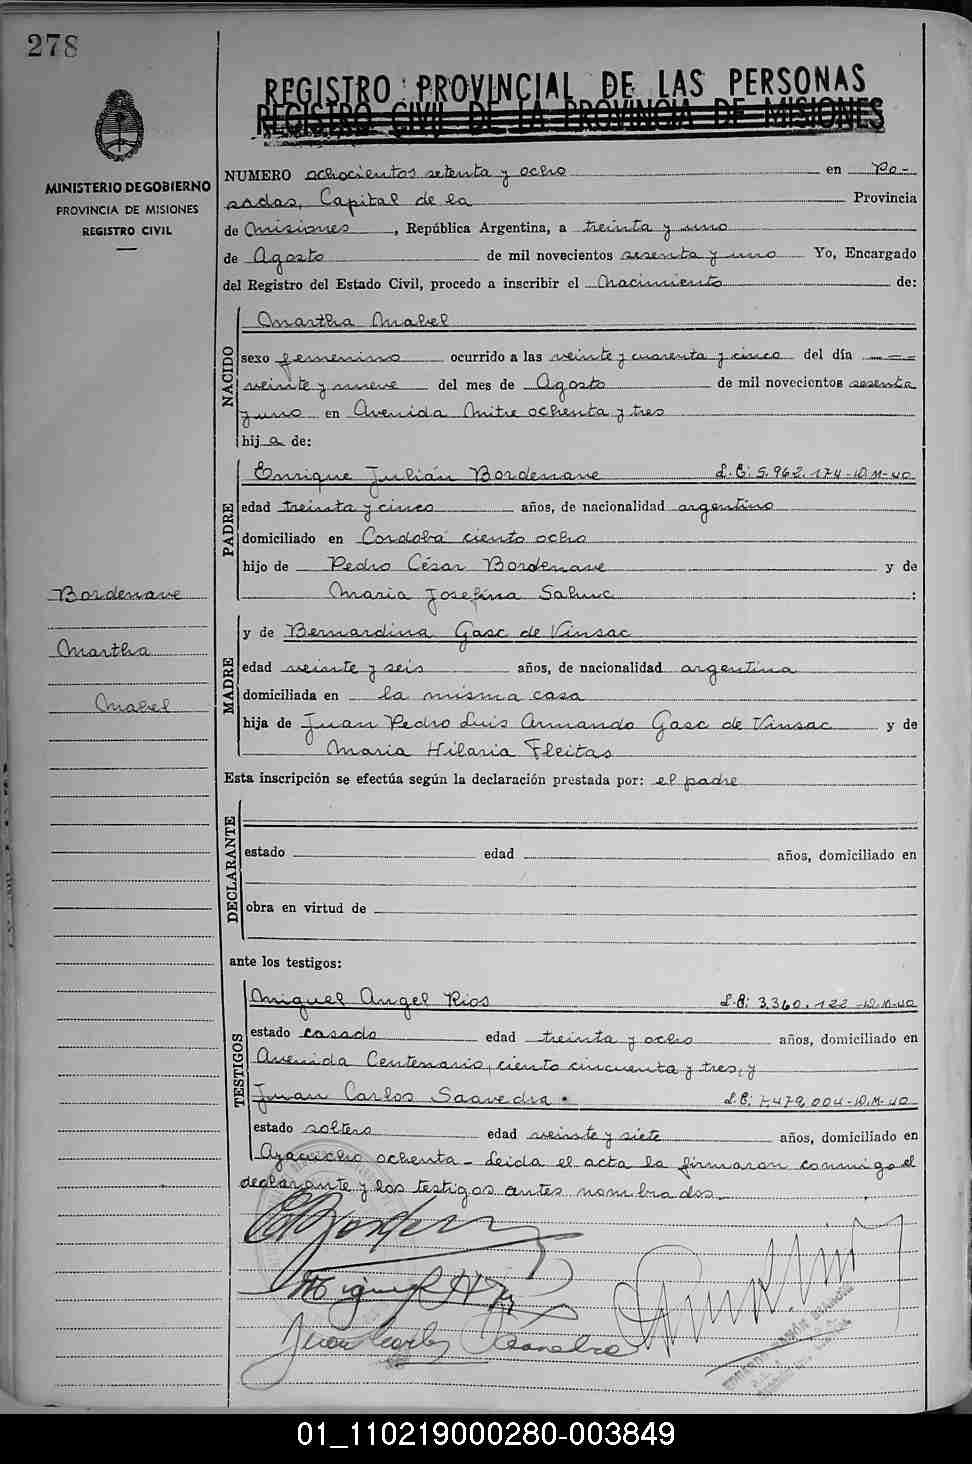 278
REGISTRO PROVINCIAL DE LAS PERSONAS
REGISTRO CIVIL DE LA PROVINCIA DE MISIONES
MINISTERIO DE GOBIERNO
PROVINCIA DE MISIONES
REGISTRO CIVIL
NUMERO ochocientos setenta y ocho en Po-
sadas, Capital de la Provincia
de Misiones, República Argentina, a treinta y uno
de Agosto de mil novecientos sesenta y uno Yo, Encargado
del Registro del Estado Civil, procedo a inscribir el Nacimiento de:
NACIDO
Martha Mabel
sexo femenino ocurrido a las veinte y cuarenta y cinco del día
veinte y nueve del mes de Agosto de mil novecientos sesenta
y uno en Avenida Mitre ochenta y tres
hija de:
PADRE
Enrique Julián Bordenave L.E: 5.962.174-D.M-40
edad treinta y cinco años, de nacionalidad argentino
domiciliado en Cordoba ciento ocho
hijo de Pedro César Bordenave y de
Maria Josefina :
Bordenave
Martha
Mabel
MADRE
y de Bernardina Gasc de Vinsac
edad veinte y seis años, de nacionalidad argentina
domiciliada en la misma casa
hija de Juan Pedro Luis Armando Gasc de Vinsac y de
Maria Hilaria Fleitas
Esta inscripción se efectúa según la declaración prestada por: el padre
DECLARANTE
estado edad años, domiciliado en
obra en virtud de
ante los testigos:
TESTIGOS
Miguel Angel Rios L.E: 3.360.122-D.M-40
estado casado edad treinta y ocho años, domiciliado en
Avenida Centenario, ciento cincuenta y tres, y
Juan Carlos Saavedra. L.E: 7.479.004-D.M-40
estado soltero edad veinte y siete años, domiciliado en
Ayacucho ochenta - Leida el acta la firmaron conmigo el
declarante y los testigos antes nombrados.
Miguel A
Juan Carlos Saavedra
01_110219000280-003849